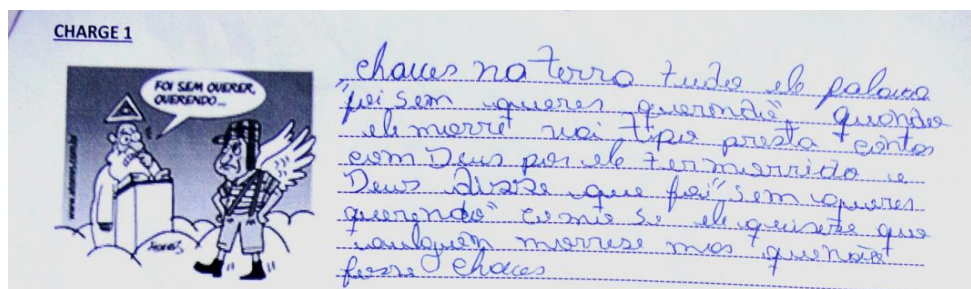 CHARGE 1
FOI SEM QUERER,
QUERENDO...
chaves na terra tudo ele palava
"foi sem queres querendo", quando
ele morre vai tipo presta contas
com Deus por ele ter morrido e
Deus disse que foi "sem queres
querendo" como se ele quisese que
alguém morrese mas que não
fosse chaves